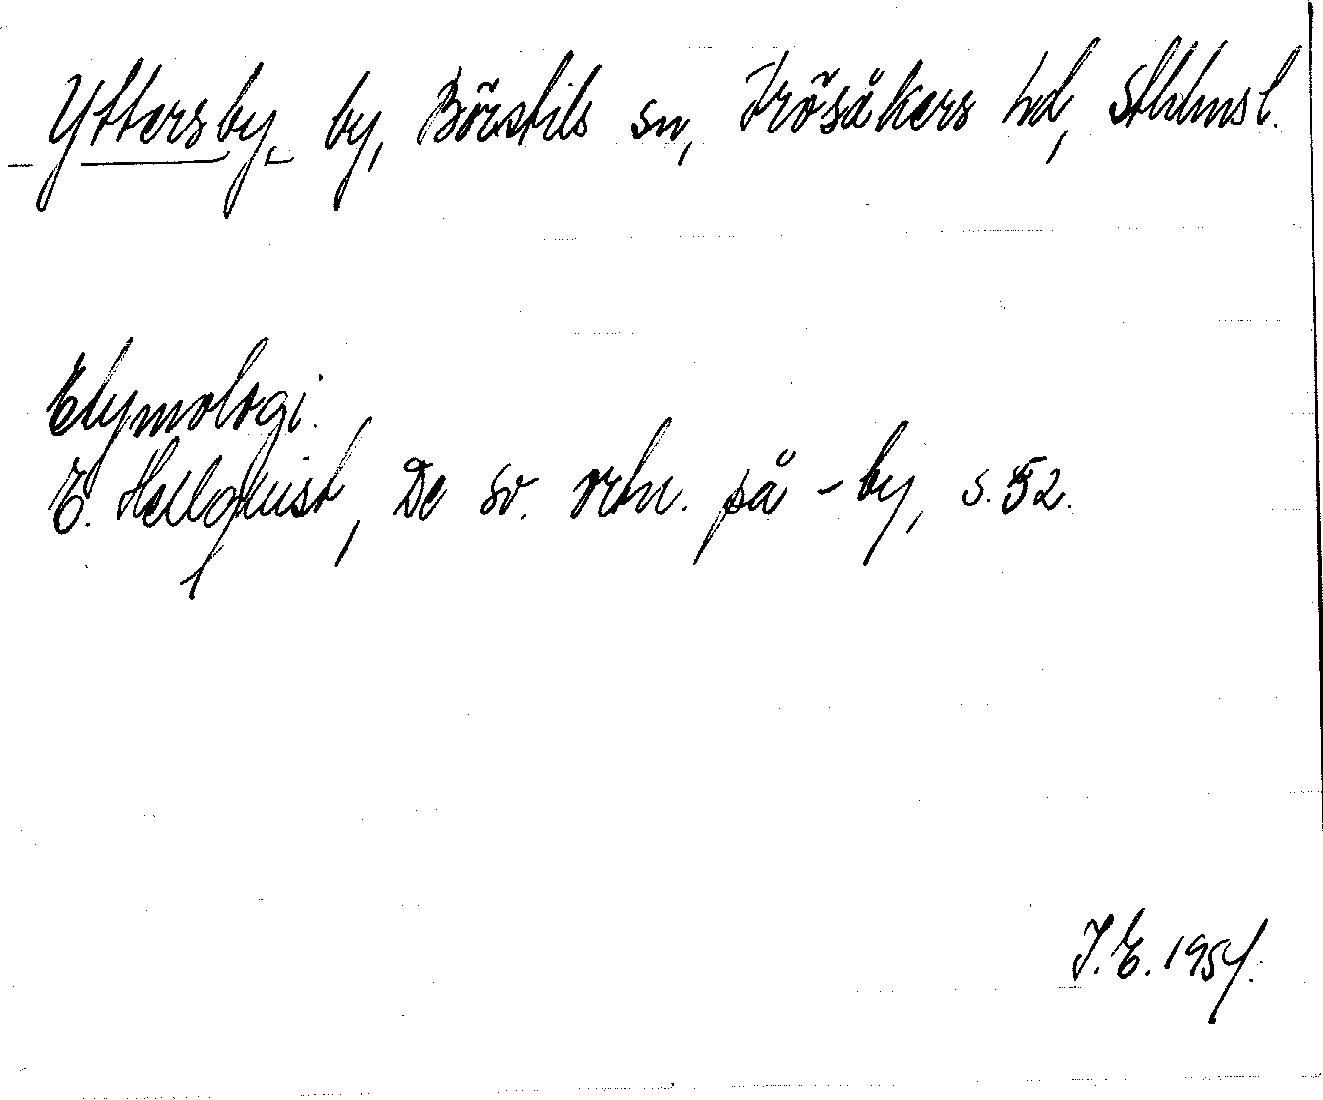 Yttersby, by, Börstils sn, Frösåkers hd, Sthlmsl.
Etymologi.
E. Hellquist, De sv. ortn. på -by, s. 52.
J.E. 1954.